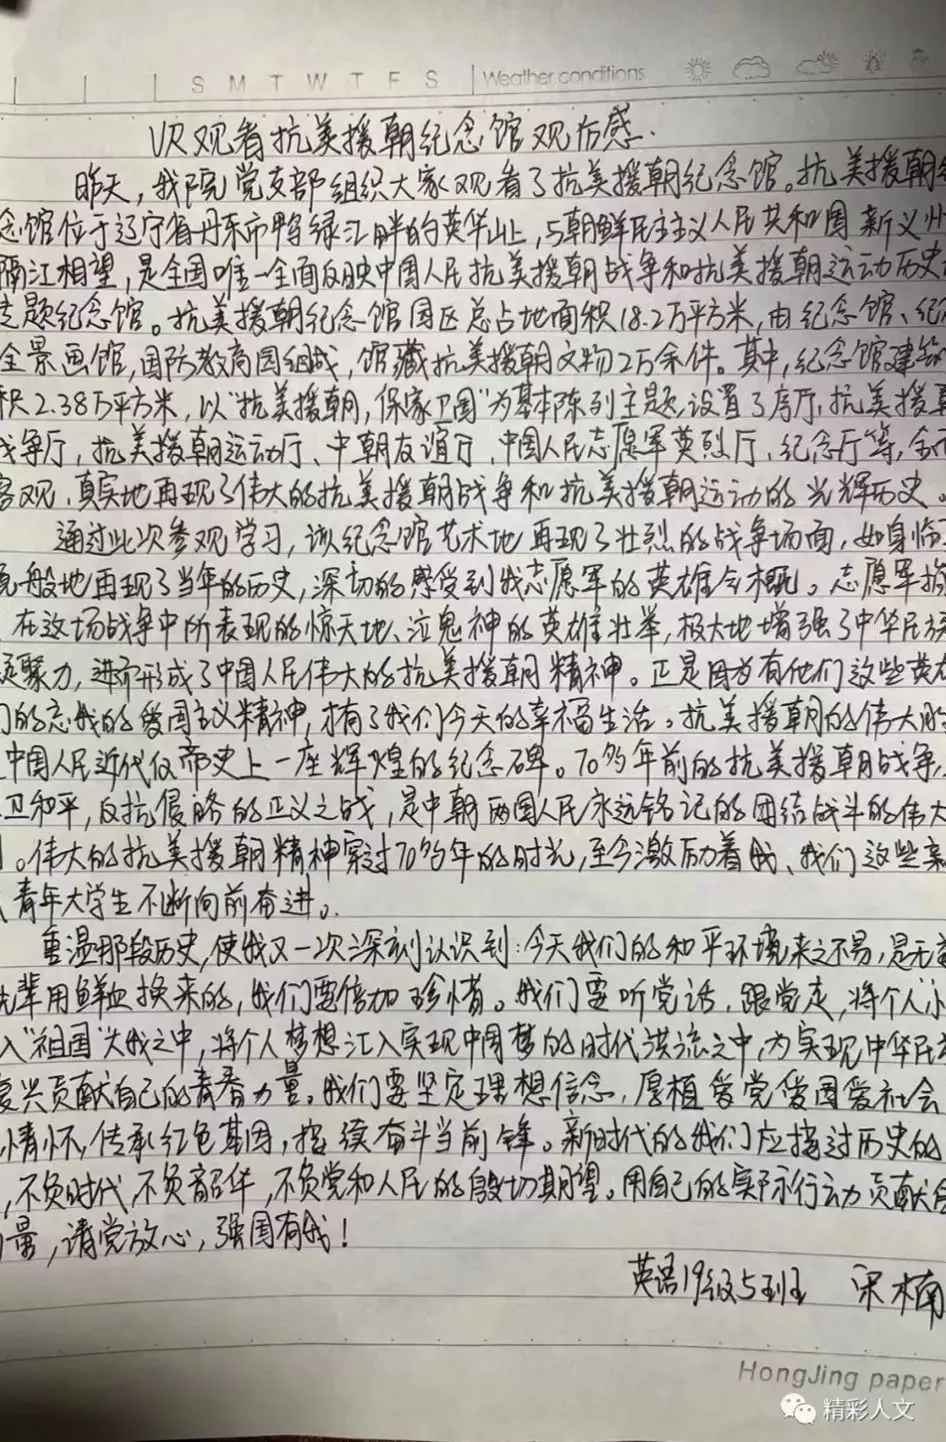 S M T W T F S Weather conditions
VR观看抗美援朝纪念馆观后感.
昨天，我院党支部组织大家观看了抗美援朝纪念馆。抗美援朝纪
念馆位于辽宁省丹东市鸭绿江畔的英华山上，与朝鲜民主主义人民共和国新义州
隔江相望，是全国唯一全面反映中国人民抗美援朝战争和抗美援朝运动历史
专题纪念馆。抗美援朝纪念馆园区总占地面积18.2万平方米，由纪念馆、纪
全景画馆，国防教育园组成，馆藏抗美援朝文物2万余件。其中，纪念馆建筑
积2.38万平方米，以"抗美援朝，保家卫国"为基本陈列主题，设置了序厅、抗美援
战争厅，抗美援朝运动厅、中朝友谊厅、中国人民志愿军英烈厅、纪念厅等，全
客观、真实地再现了伟大的抗美援朝战争和抗美援朝运动的光辉历史。
通过此次参观学习，该纪念馆艺术地再现了壮烈的战争场面，如身临
境般地再现了当年的历史，深切的感受到我志愿军的英雄气概。志愿军
在这场战争中所表现的惊天地、泣鬼神的英雄壮举，极大地增强了中华民族
凝聚力，进而形成了中国人民伟大的抗美援朝精神。正是因为有他们这些英
们的忘我的爱国主义精神，才有了我们今天的幸福生活。抗美援朝的伟大胜
中国人民近代反帝史上一座辉煌的纪念碑。70多年前的抗美援朝战争，
卫和平，反抗侵略的正义之战，是中朝两国人民永远铭记的团结战斗的伟大
。伟大的抗美援朝精神穿过70多年的时光，至今激励着我、我们这些新
青年大学生不断向前奋进。
重温那段历史，使我又一次深刻认识到：今天我们的和平环境来之不易，是无
先辈用鲜血换来的，我们要倍加珍惜。我们要听党话，跟党走，将个人"小
入"祖国"大我之中，将个人梦想汇入实现中国梦的时代洪流之中，为实现中华民
复兴贡献自己的青春力量。我们要坚定理想信念，厚植爱党爱国爱社会
情怀，传承红色基因，接续奋斗当前锋。新时代的我们应接过历史的
，不负时代，不负韶华，不负党和人民的殷切期望。用自己的实际行动贡献
量，请党放心，强国有我！
英语19级5班 宋楠
HongJing paper
精彩人文